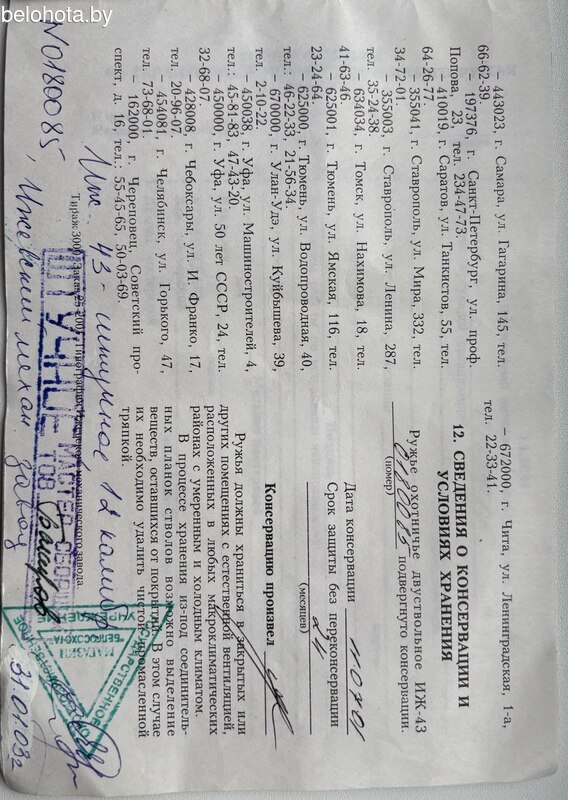 belohota.by
– 443023, г. Самара, ул. Гагарина, 145, тел.
66-62-39.
– 197376, г. Санкт-Петербург, ул. проф.
Попова, 23, тел. 234-47-73.
– 410019, г. Саратов, ул. Танкистов, 55, тел
64-26-77.
– 355041, г. Ставрополь, ул. Мира, 332, тел.
34-72-01.
– 355003, г. Ставрополь, ул. Ленина, 287,
тел. 35-24-38.
– 634034, г. Томск, ул. Нахимова, 18, тел.
41-63-46.
– 625001, г. Тюмень, ул. Ямская, 116, тел.
23-24-64.
– 625000, г. Тюмень, ул. Водопроводная, 40,
тел.: 46-22-33, 21-56-34.
– 670000, г. Улан-Удэ, ул. Куйбышева, 39,
тел. 2-10-22.
– 450038, г. Уфа, ул. Машиностроителей, 4,
тел.: 45-81-83, 47-43-20.
– 450000, г. Уфа, ул. 50 лет СССР, 24, тел.
32-68-07.
– 428008, г. Чебоксары, ул. И. Франко, 17,
тел. 20-96-07.
– 454081, г. Челябинск, ул. Горького, 47,
тел. 73-68-01.
– 162000, г. Череповец, Советский про-
спект, д. 16, тел.: 55-45-65, 50-03-69.
– 672000, г. Чита, ул. Ленинградская, 1-а,
тел. 22-33-41.
12. СВЕДЕНИЯ О КОНСЕРВАЦИИ И
УСЛОВИЯХ ХРАНЕНИЯ
Ружье охотничье двуствольное ИЖ-43
0180085 подвергнуто консервации.
(номер)
Дата консервации
Срок защиты без переконсервации
24
(месяцев)
Консервацию произвел
Ружья должны храниться в закрытых или
других помещениях с естественной вентиляцией,
расположенных в любых макроклиматических
районах с умеренным и холодным климатом.
В процессе хранения из-под соединитель-
ных планок стволов возможно выделение
веществ, оставшихся от покрытия. В этом случае
их необходимо удалить чистой промасленной
тряпкой.
Тираж 3000. Заказ
механического завода
Иж-43 - штучное 12 калибр
N0180085, Ижевский механ завод
МАГАЗИН
31.01.03г